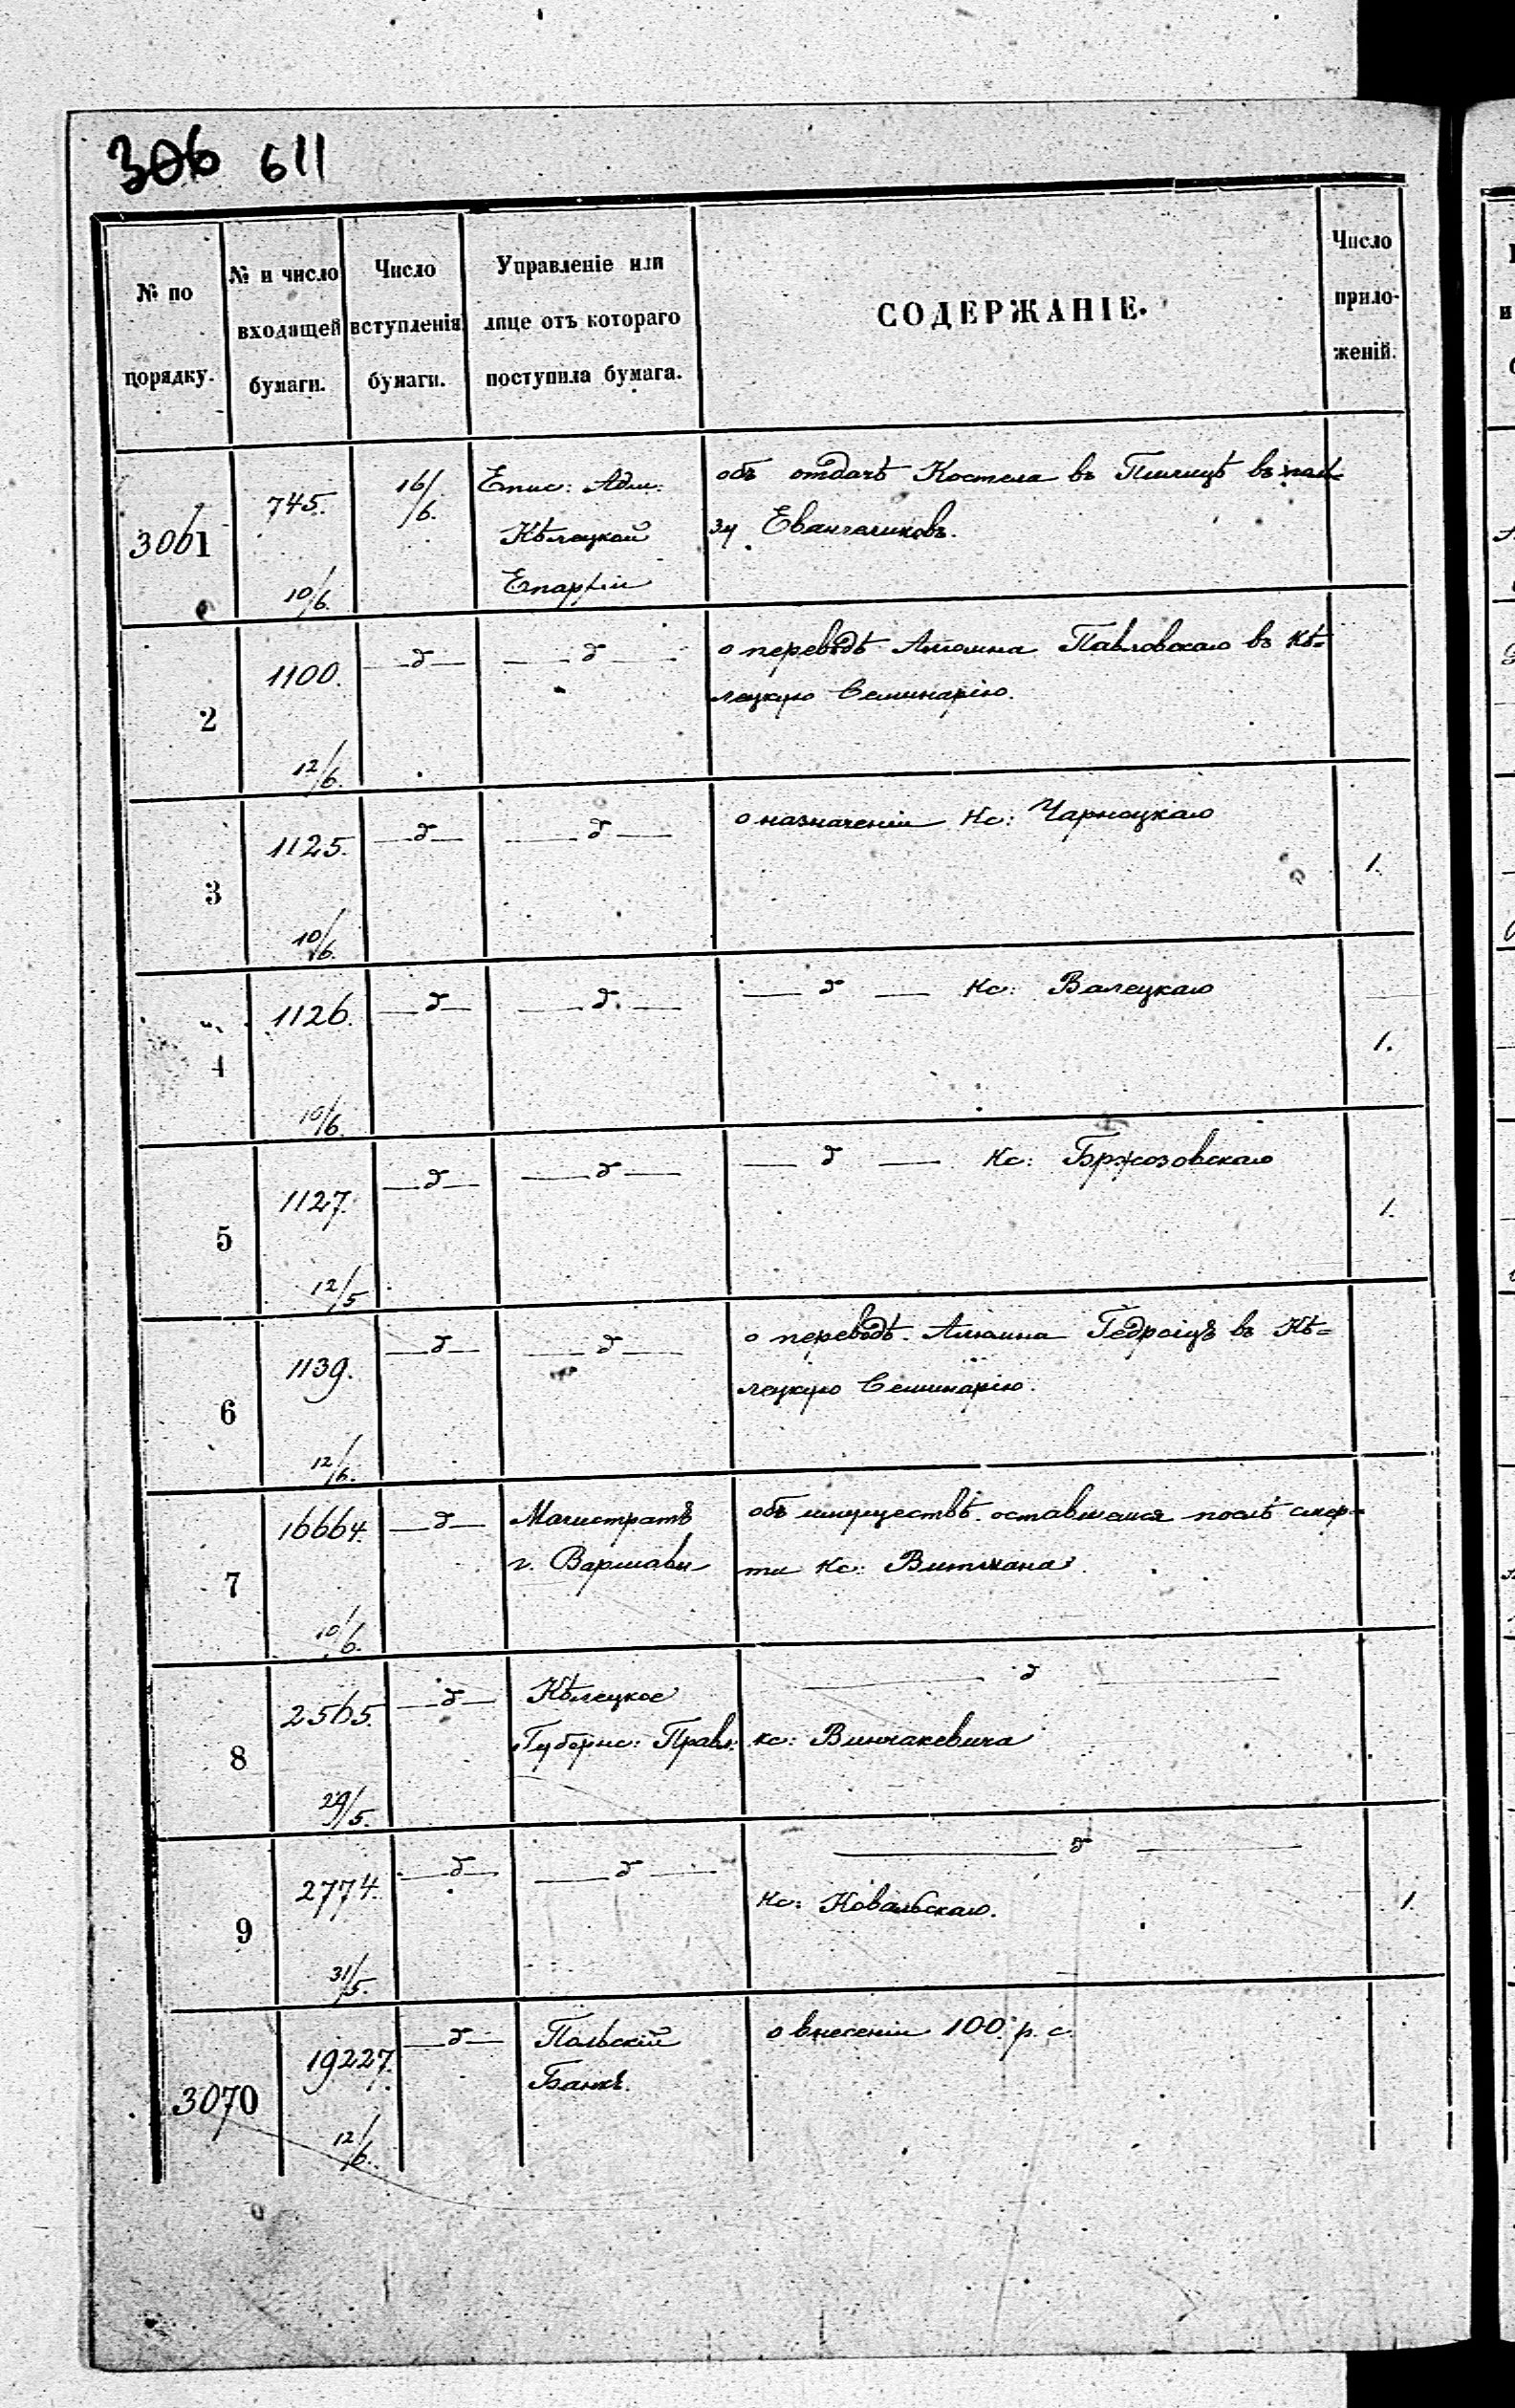 306 611
№ по порядку.
№ и число входящей бумаги.
Число вступленія бумаги.
Управленіе или лице отъ котораго поступила бумага.
СОДЕРЖАНІЕ.
Число приложеній.
3061 745. 10/6. 16/6. Епис: Адм: об отдачѣ Костела въ Пилицѣ въ поль-
Кѣлецкой зу Евангеликовъ.
Епархіи
2 1100. 12/6. —д— —д— о переводѣ Алюмна Павловскаго въ Кѣ=
лецкую Семинарію.
3 1125. 10/6. —д— —д— о назначеніи Кс: Чарноцкаго 1.
4 1126. 10/6. —д— —д— —д— Кс: Валецкаго 1.
5 1127. 12/5 —д— —д— —д— Кс: Бржозовскаго 1.
6 1139. 12/6. —д— —д— о переводѣ Алюмна Гедройцъ въ Кѣ=
лецкую Семинарію.
7 16664. 10/6. —д— Магистратъ объ имуществѣ оставшемся послѣ смер=
г. Варшавы ти Кс:
8 2565. 29/5. —д— Кѣлецкое —д—
Губернс: Правл: кс: Винчакевича
9 2774. 31/5. —д— —д— —д—
Кс: Ковальскаго. 1.
3070 19227. 12/6. —д— Польскій о внесеніи 100 р. с.
Банкъ.